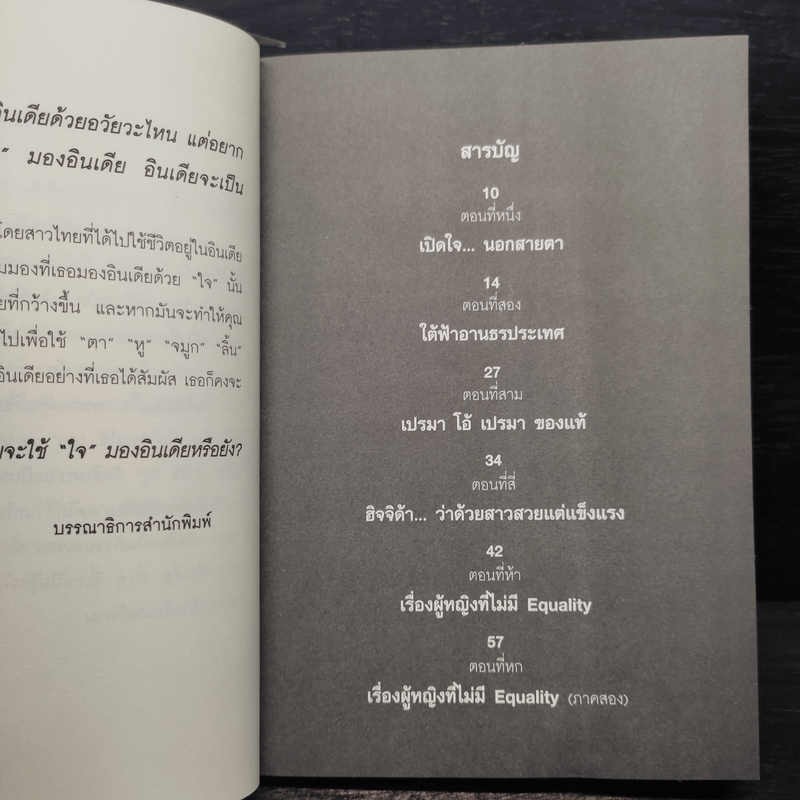 อินเดียด้วยอวัยวะไหน แต่อยาก
” มองอินเดีย อินเดียจะเป็น
โดยสาวไทยที่ได้ไปใช้ชีวิตอยู่ในอินเดีย
มมองที่เธอมองอินเดียด้วย “ใจ” นั้น
ยที่กว้างขึ้น และหากมันจะทำให้คุณ
ไปเพื่อใช้ “ตา” “หู” “จมูก” “ลิ้น”
อินเดียอย่างที่เธอได้สัมผัส เธอก็คงจะ
จะใช้ “ใจ” มองอินเดียหรือยัง?
บรรณาธิการสำนักพิมพ์
สารบัญ
10
ตอนที่หนึ่ง
เปิดใจ... นอกสายตา
14
ตอนที่สอง
ใต้ฟ้าอานธรประเทศ
27
ตอนที่สาม
เปรมา โอ้ เปรมา ของแท้
34
ตอนที่สี่
ฮิจจิด้า... ว่าด้วยสาวสวยแต่แข็งแรง
42
ตอนที่ห้า
เรื่องผู้หญิงที่ไม่มี Equality
57
ตอนที่หก
เรื่องผู้หญิงที่ไม่มี Equality (ภาคสอง)